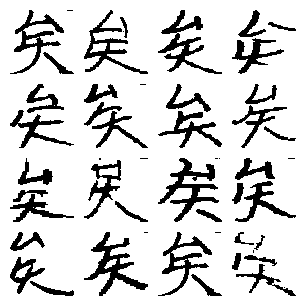 矣矣矣矣
矣矣矣矣
矣矣矣矣
矣矣矣矣